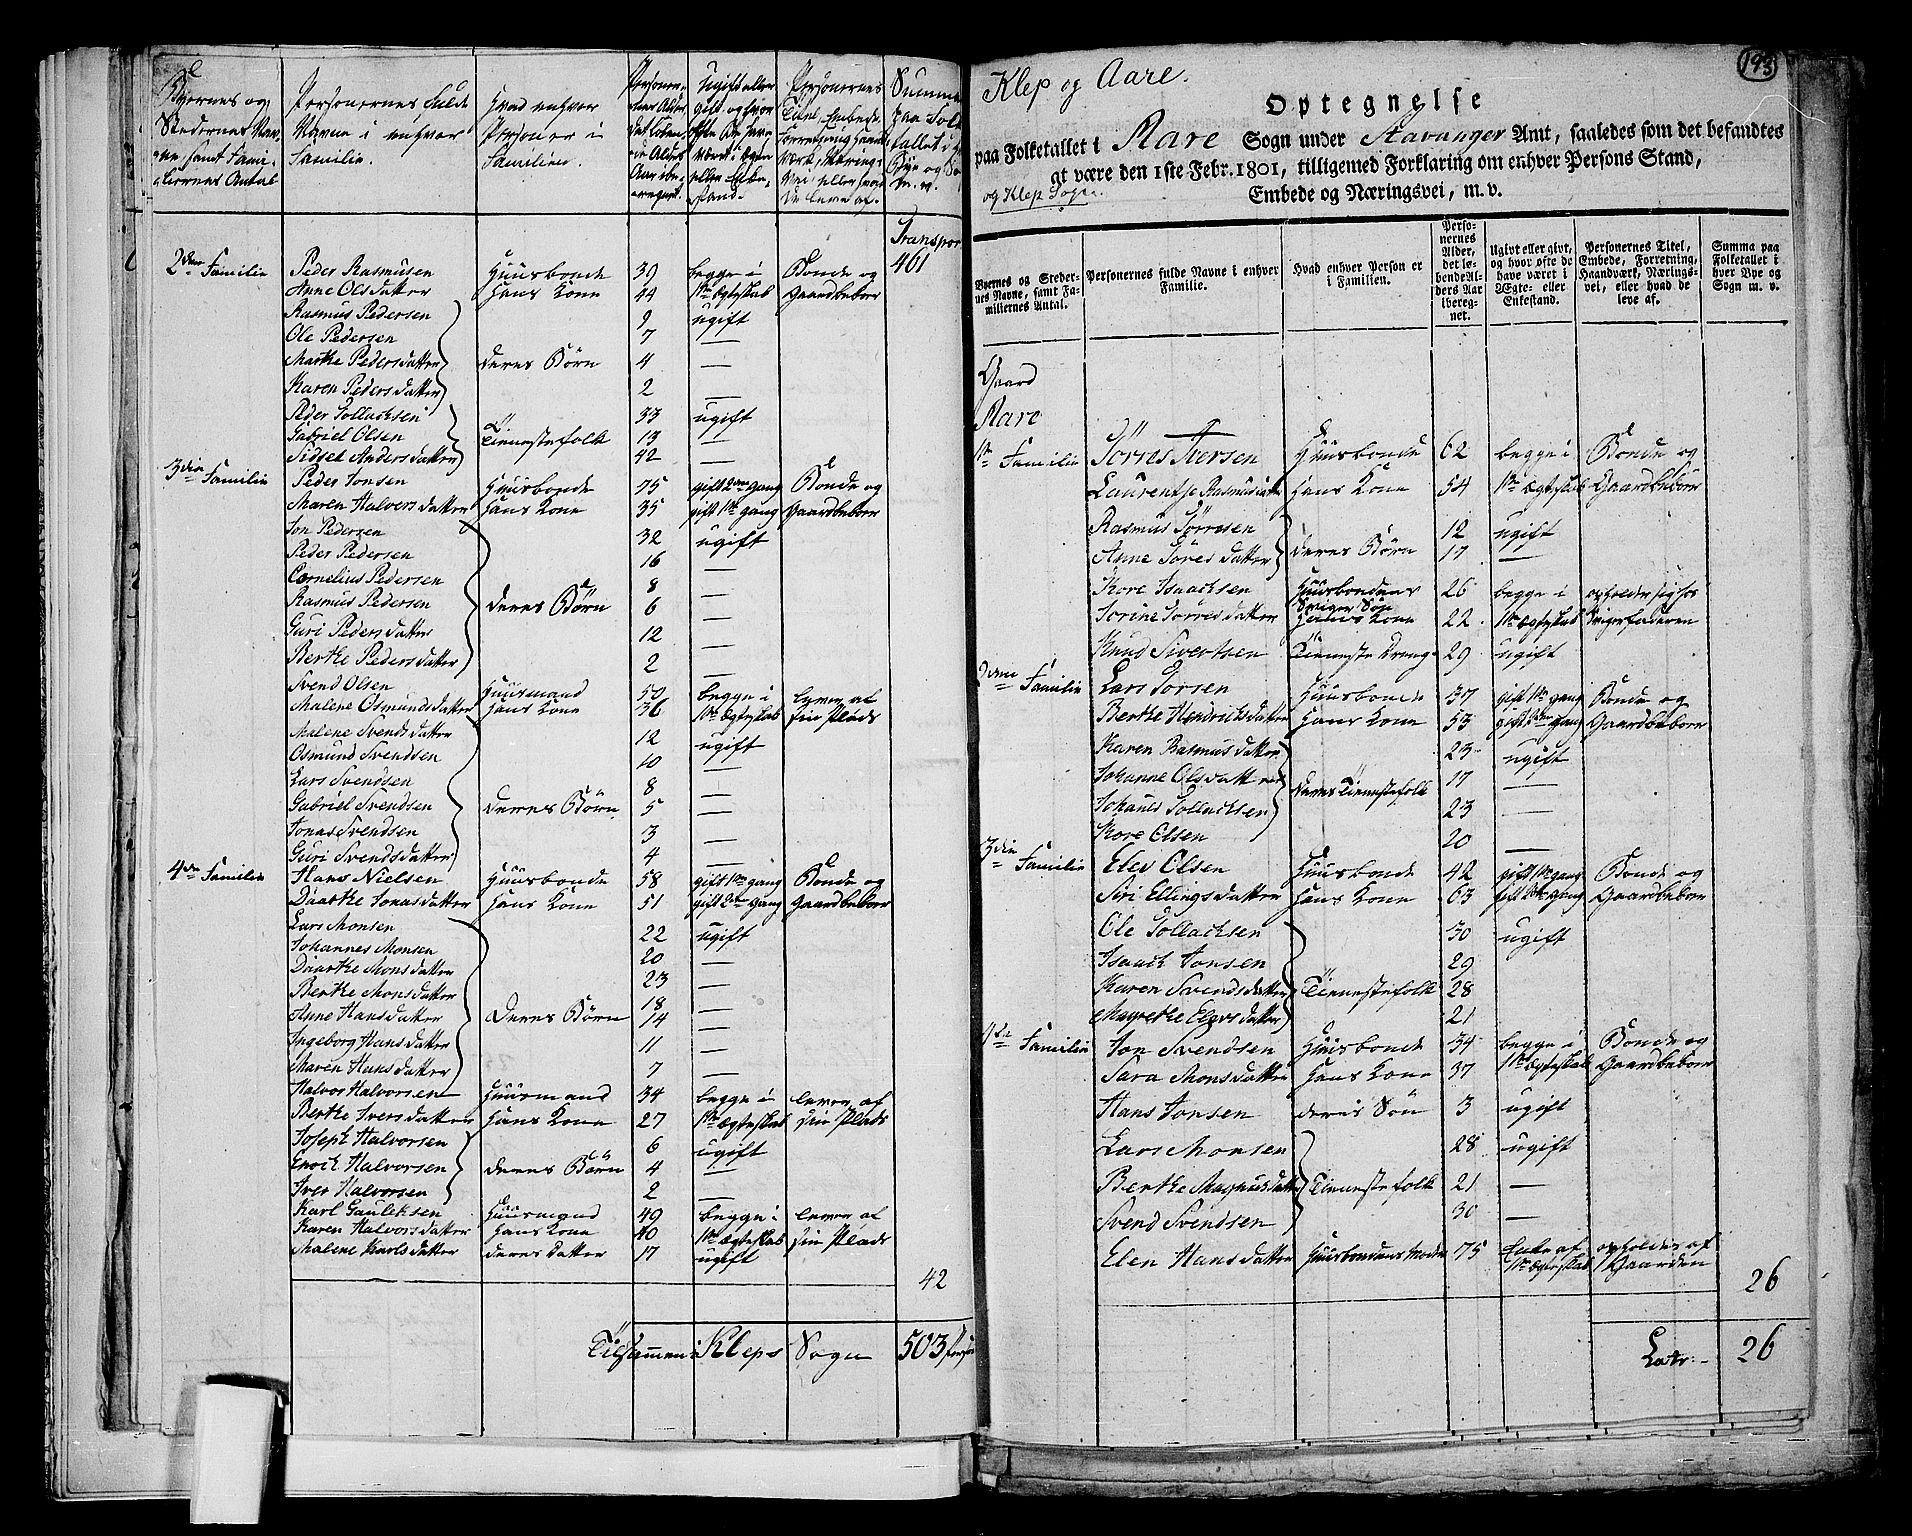 Byernes og Stedernes Navne samt Familiernes Antal
Personernes Fulde Navne i enhver Familie.
Hvad enhver Person er i Familien.
Transport
2den Familie Peder Rasmusen Huusbonde 39 begge i Bonde og 461
Anne Olsdatter Hans Kone 44 1ste Ægteskab Gaardbeboer
Rasmus Pedersen 9 ugift
Ole Pedersen 7 —
Marthe Pedersdatter deres Børn 4 —
Karen Pedersdatter 2 —
Peder Tollachsen 33 ugift
Gabriel Olsen Tienestefolk 13 —
Sidsel Andersdatter 42 —
3die Familie Peder Jonsen Huusbonde 75 gift 2den gang Bonde og
Maren Halvorsdatter Hans Kone 35 gift 1ste gang Gaardbeboer
Jon Pedersen 32 ugift
Peder Pedersen 16 —
Cornelius Pedersen 8 —
Rasmus Pedersen deres Børn 6 —
Guri Pedersdatter 12 —
Berthe Pedersdatter 2 —
Svend Olsen Huusmand 50 begge i lever af
Malene Osmundsdatter Hans Kone 36 1ste Ægteskab sin Plads
Malene Svendsdatter 12 ugift
Osmund Svendsen 10 —
Lars Svendsen 8 —
Gabriel Svendsen deres Børn 5 —
Jonas Svendsen 3 —
Guri Svendsdatter 4 —
4de Familie Hans Nielsen Huusbonde 58 gift 1ste gang Bonde og
Daarthe Jonasdatter Hans Kone 51 gift 2den gang Gaardbeboer
Lars Monsen 22 ugift
Johannes Monsen 20 —
Daarthe Monsdatter 23 —
Berthe Monsdatter 18 —
Anne Hansdatter Deres Børn 14 —
Ingeborg Hansdatter 11 —
Maren Hansdatter 7 —
Halvor Halvorsen Huusmand 34 begge i lever af
Berthe Iversdatter Hans Kone 27 1ste Ægteskab sin Plads
Joseph Halvorsen 6 ugift
Enoch Halvorsen deres Børn 4 —
Iver Halvorsen 2 —
Karl Gauleksen Huusmand 49 begge i lever af
Karen Halvorsdatter Hans Kone 40 1ste Ægteskab sin Plads
Malene Karlsdatter deres datter 17 ugift
42
Tilsammen i Kleps Sogn 503
193
Klep og Aare.
Optegnelse
paa Folketallet i Aare Sogn under Stavanger Amt, saaledes som det befandtes
at være den 1ste Febr. 1801, tilligemed Forklaring om enhver Persons Stand,
og Klep Sogn. Embede og Næringsvei, m. v.
Byernes og Stedernes Navne, samt Familiernes Antal.
Personernes fulde Navne i enhver Familie.
Hvad enhver Person er i Familien.
Personernes Alder, det løbende Alders Aar iberegnet.
Ugivt eller givt, og hvor ofte de have været i Ægte- eller Enkestand.
Personernes Titel, Embede, Forretning, Haandværk, Næringsvei, eller hvad de leve af.
Summa paa Folketallet i hver Bye og Sogn m. v.
Gaard
Aare
1ste Familie Törres Iversen Huusbonde 62 begge i Bonde og
Laurentje Rasmusdatter Hans Kone 54 1ste Ægteskab Gaardbeboer
Rasmus Törresen 12 ugift
Anne Törresdatter deres Børn 17 —
Kore Isaachsen Huusbondens Sviger Søn 26 begge i opholder sig hos
Jorine Törresdatter Hans Kone 22 1ste Ægteskab Svigerfaderen
Knud Sivertsen Tieneste Dreng 29 ugift
2den Familie Lars Torsen Huusbonde 37 gift 1ste gang Bonde og
Berthe Hendrichsdatter Hans Kone 53 gift 2den gang Gaardbeboer
Karen Rasmusdatter 23 ugift
Johanne Olsdatter deres Tienestefolk 17 —
Johanes Tollachsen 23 —
Kore Olsen 20 —
3die Familie Elev Olsen Huusbonde 42 gift 1ste gang Bonde og
Siri Ellingsdatter Hans Kone 63 gift 2den gang Gaardbeboer
Ole Tollachsen 30 ugift
Isaach Jonsen 29
Karen Svendsdatter Tienestefolk 28
Magrethe Elevsdatter 21
4de Familie Jon Svendsen Huusbonde 34 begge i Bonde og
Sara Monsdatter Hans Kone 37 1ste Ægteskab Gaardbeboer
Hans Jonsen deres Søn 3 ugift
Lars Monsen 28 ugift
Berthe Magnusdatter Tienestefolk 21 —
Svend Svendsen 30 —
Elen Hansdatter Huusbondens Moder 75 Enke af opholder af
1ste Ægteskab Gaarden
26
Latr: 26